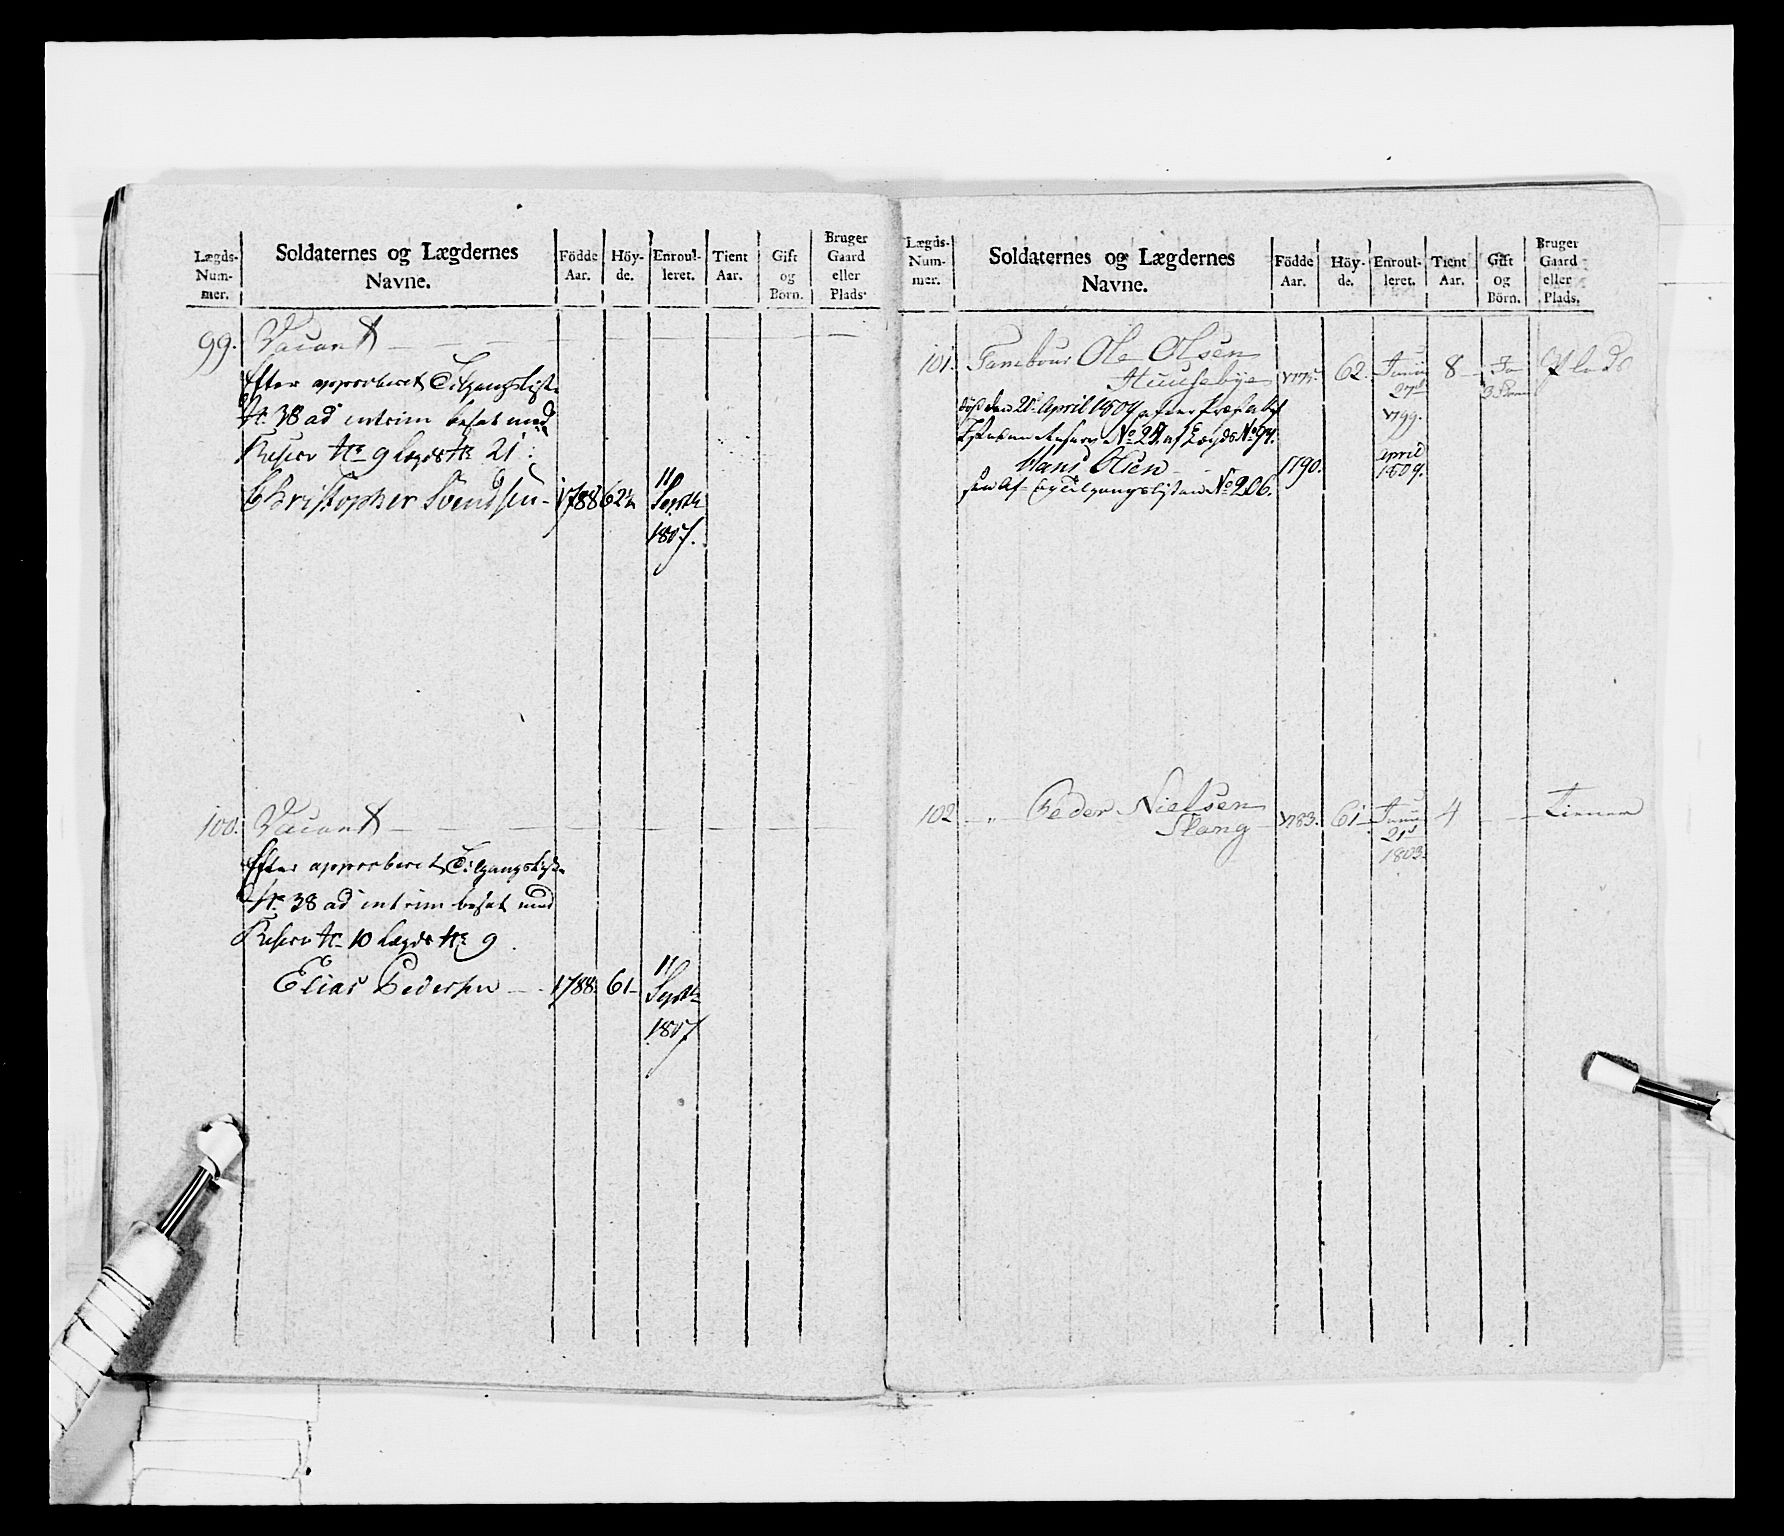 Lægds-
Num-
mer.
Soldaternes og Lægdernes
Navne.
Födde
Aar.
Höy-
de.
Enroul-
leret.
Tient
Aar.
Gift
og
Börn.
Bruger
Gaard
eller
Plads.
99. Vacant
Efter approberet Tilgangsliste
No 38 ad intrim besat med
Reserv No 9 Lægds No 21
Christopher Svendsen - 1788 62½ 11 Septbr 1807.
100. Vacant
Efter approberet Tilgangsliste
No 38 ad intrim besat med
Reserv No 10 Lægds No 9
Elias Pedersen - 1788. 61 11 Septbr 1807
Lægds-
Num-
mer.
Soldaternes og Lægdernes
Navne.
Födde
Aar.
Höy-
de.
Enroul-
leret.
Tient
Aar.
Gift
og
Börn.
Bruger
Gaard
eller
Plads.
101. Tambour Ole Olsen
Huusebye 62. Junii 27d 1799. 8 Ja 3 Plads
den April af Lægds No 94.
Hans Olsen 1790. April 1809.
No 206.
102 " Peder Nielsen
Stang 1783. 61 Junii 21d 1803. 4 Tienner